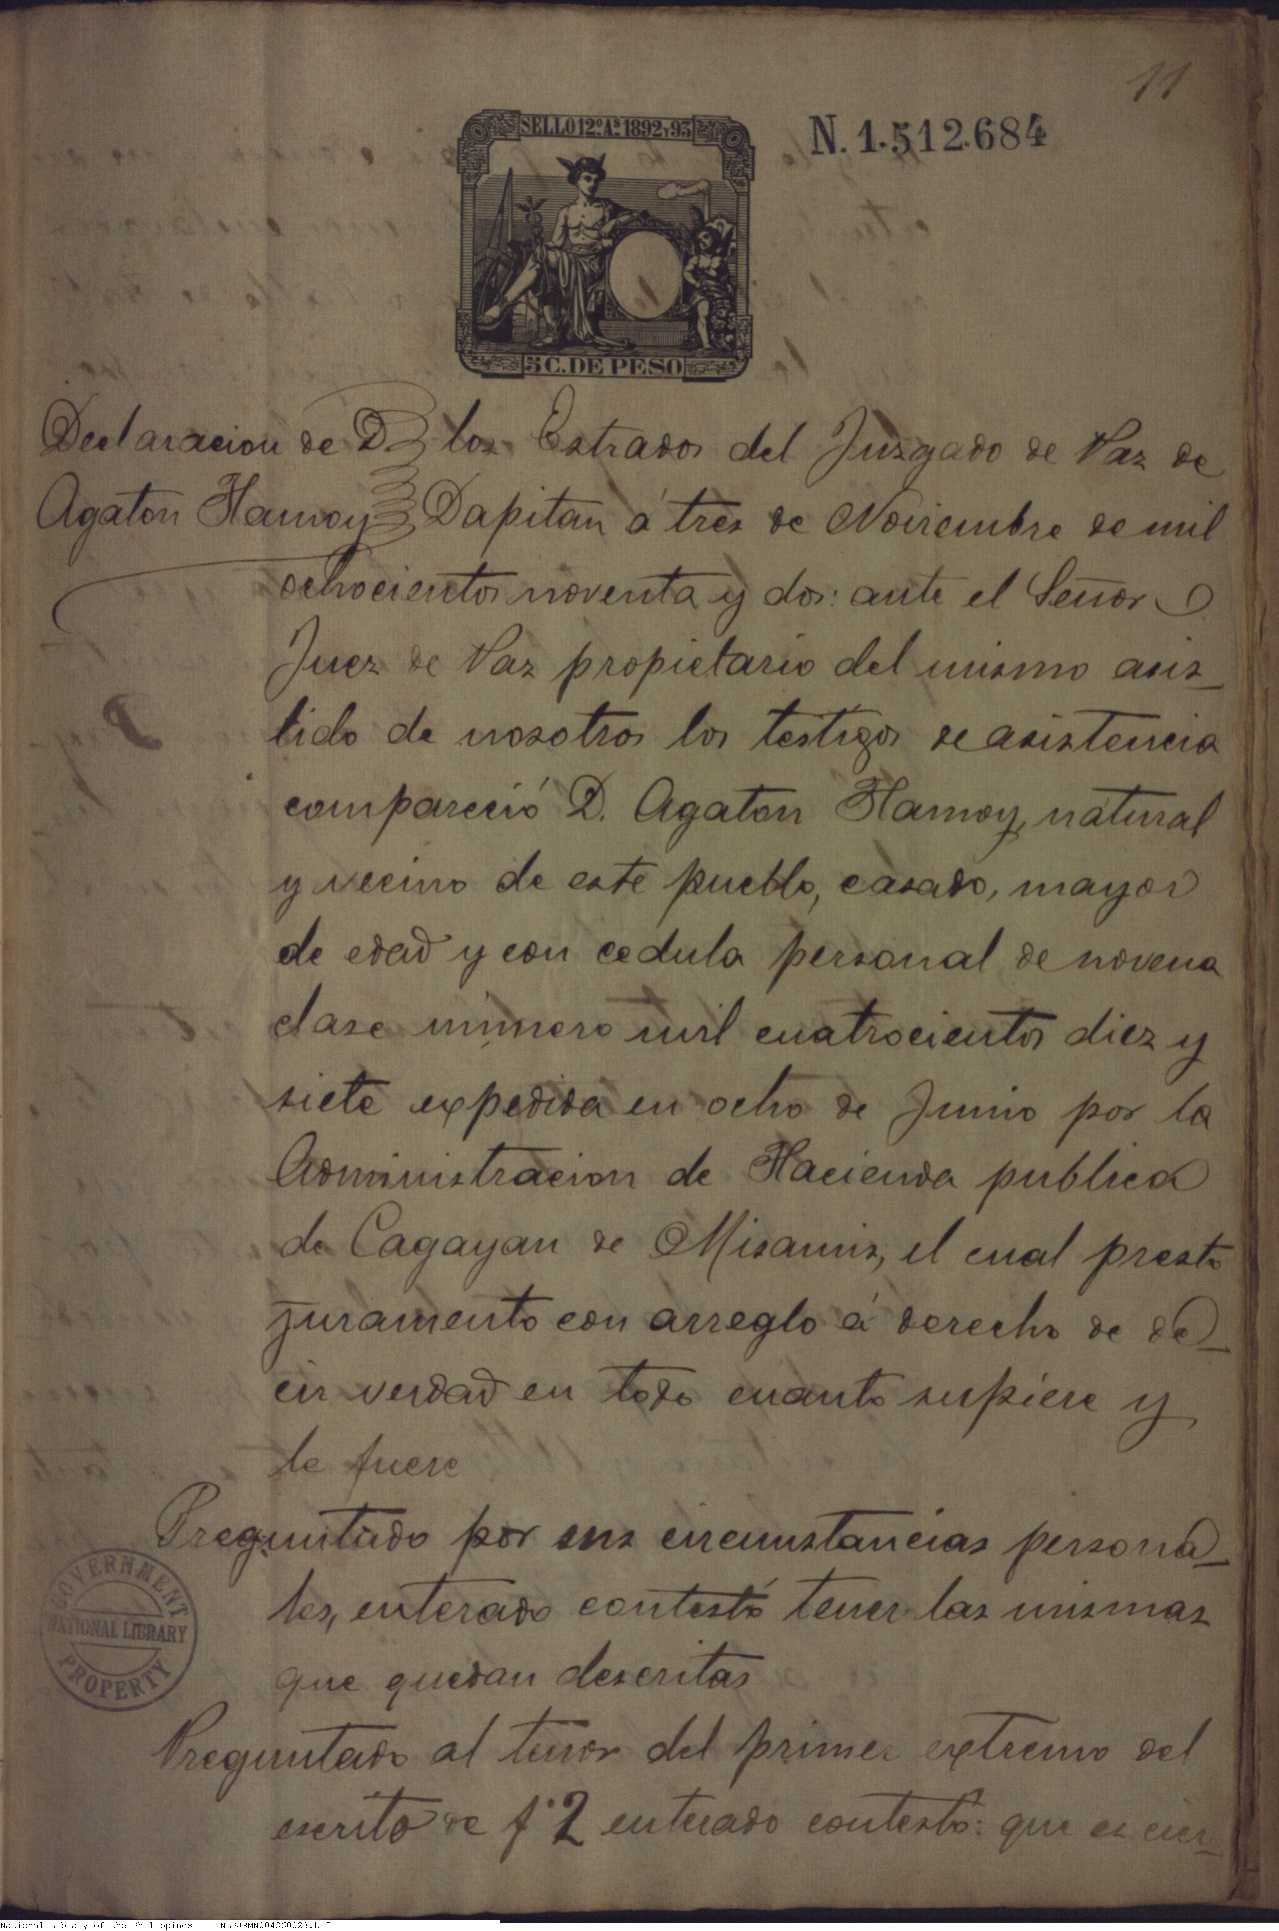 11
SELLO 12.º A.s 1892 y 93
N. 1.512.684
5 C. DE PESO
Declaracion de D. los Estrados del Juzgado de Paz de
Agaton Hamoy Dapitan á tres de Noviembre de mil
ochocientos noventa y dos: ante el Señor
Juez de Paz propietario del mismo asis-
tido de nosotros los testigos de asistencia
compareció D. Agaton Hamoy, natural
y vecino de este pueblo, casado, mayor
de edad y con cedula personal de novena
clase número mil cuatrocientos diez y
siete expedida en ocho de Junio por la
Administracion de Hacienda publica
de Cagayan de Misamis, el cual presto
juramento con arreglo á derecho de de-
cir verdad en todo cuanto supiere y
le fuere
Preguntado por sus circunstancias persona-
les, enterado contestó tener las mismas
que quedan descritas
Preguntado al tenor del primer extremo del
escrito de f. 2 enterado contestó: que es cier-
GOVERNMENT
NATIONAL LIBRARY
PROPERTY
National Library of the Philippines